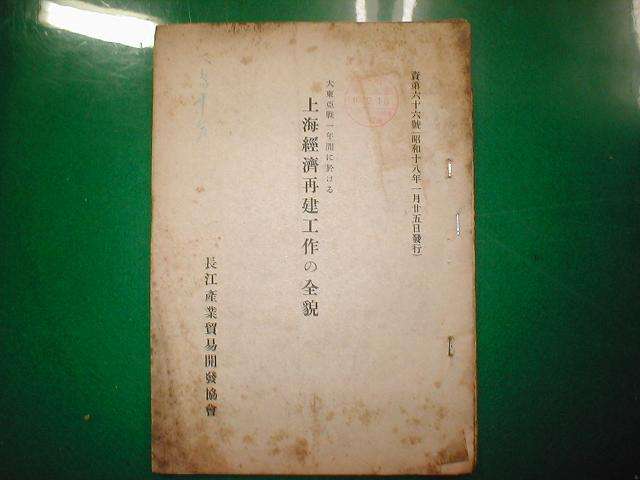 資第六十六號(昭和十八年一月廿五日發行)
大東亞戰一年間に於ける
上海經濟再建工作の全貌
長江產業貿易開發協會